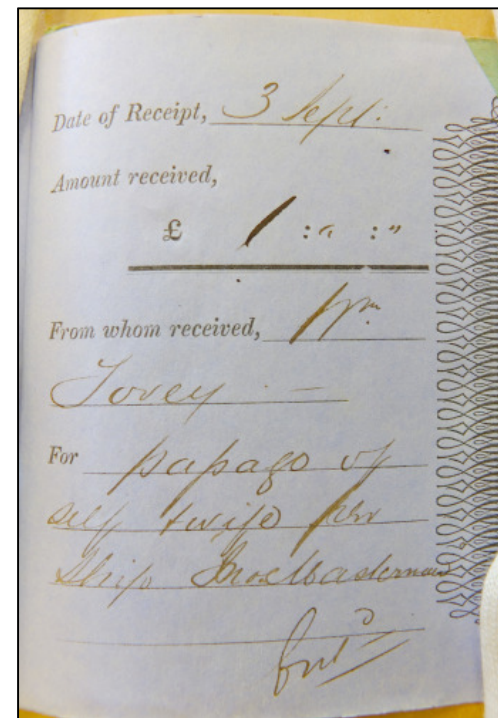 Date of Receipt, 3 Sept:
Amount received,
£ 1 : " : "
From whom received, Wm.
Tovey —
For passage of
self & wife per
Ship